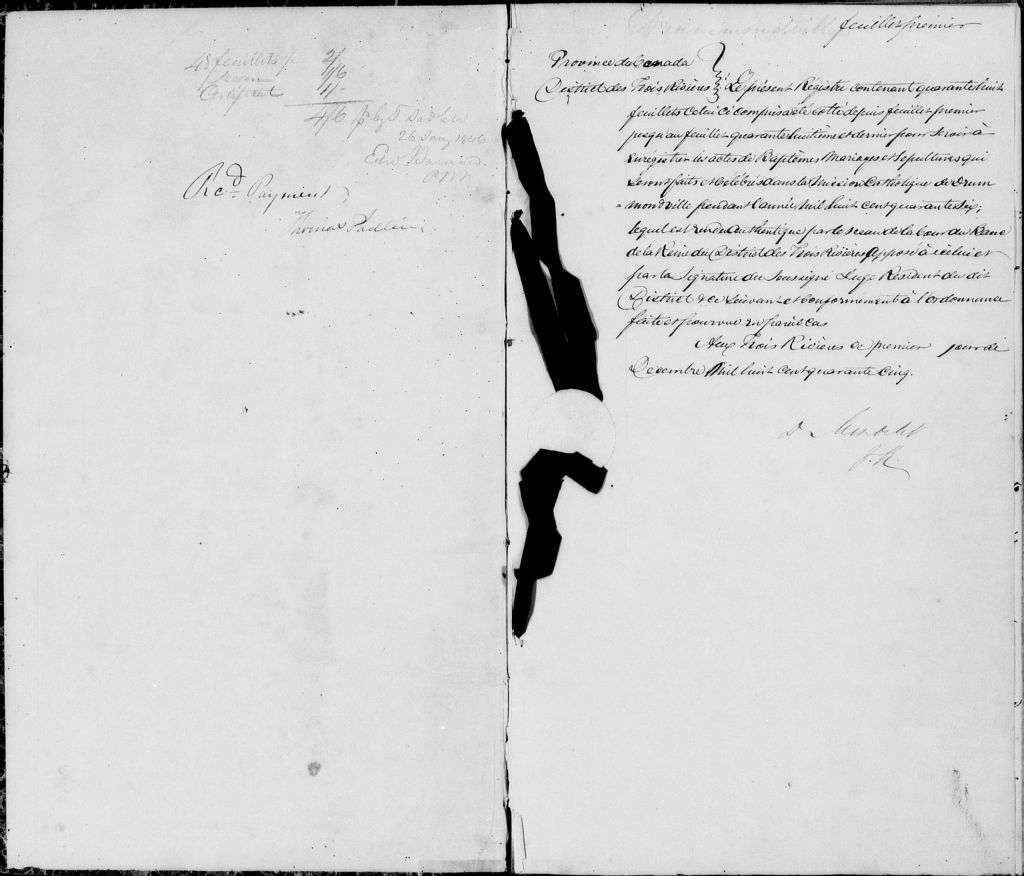 48 feuillets 2/
1/6
Certificat 1/-
4/6 pd by T. Padlei
26 Jany 1846
Edw Barnard
Recd Payment
Thomas Padlei
feuillet premier
Province du Canada
District des Trois Rivières Le présent Registre contenant quarante huit
feuillets celui ci compris a été cotté depuis feuillet premier
jusqu'au feuillet quarante huitième et dernier pour servir à
Enregistrer les actes de Baptêmes Mariages et Sepultures qui
seront faits et célébrés dans la Mission Catholique de Drum
=mondville pendant l'année Mil huit cent quarante Six;
lequel est rendu authentique par le sceau de la Cour du Banc
de la Reine du District des Trois Rivières apposé à icelui et
par la Signature du Soussigné Juge Resident du dit
District & ce Suivant et conformement à l'ordonnance
faite et pourvue en pareil cas
Aux Trois Rivières ce premier jour de
Decembre Mil huit cent quarante cinq.
D Mondelet
J. R.